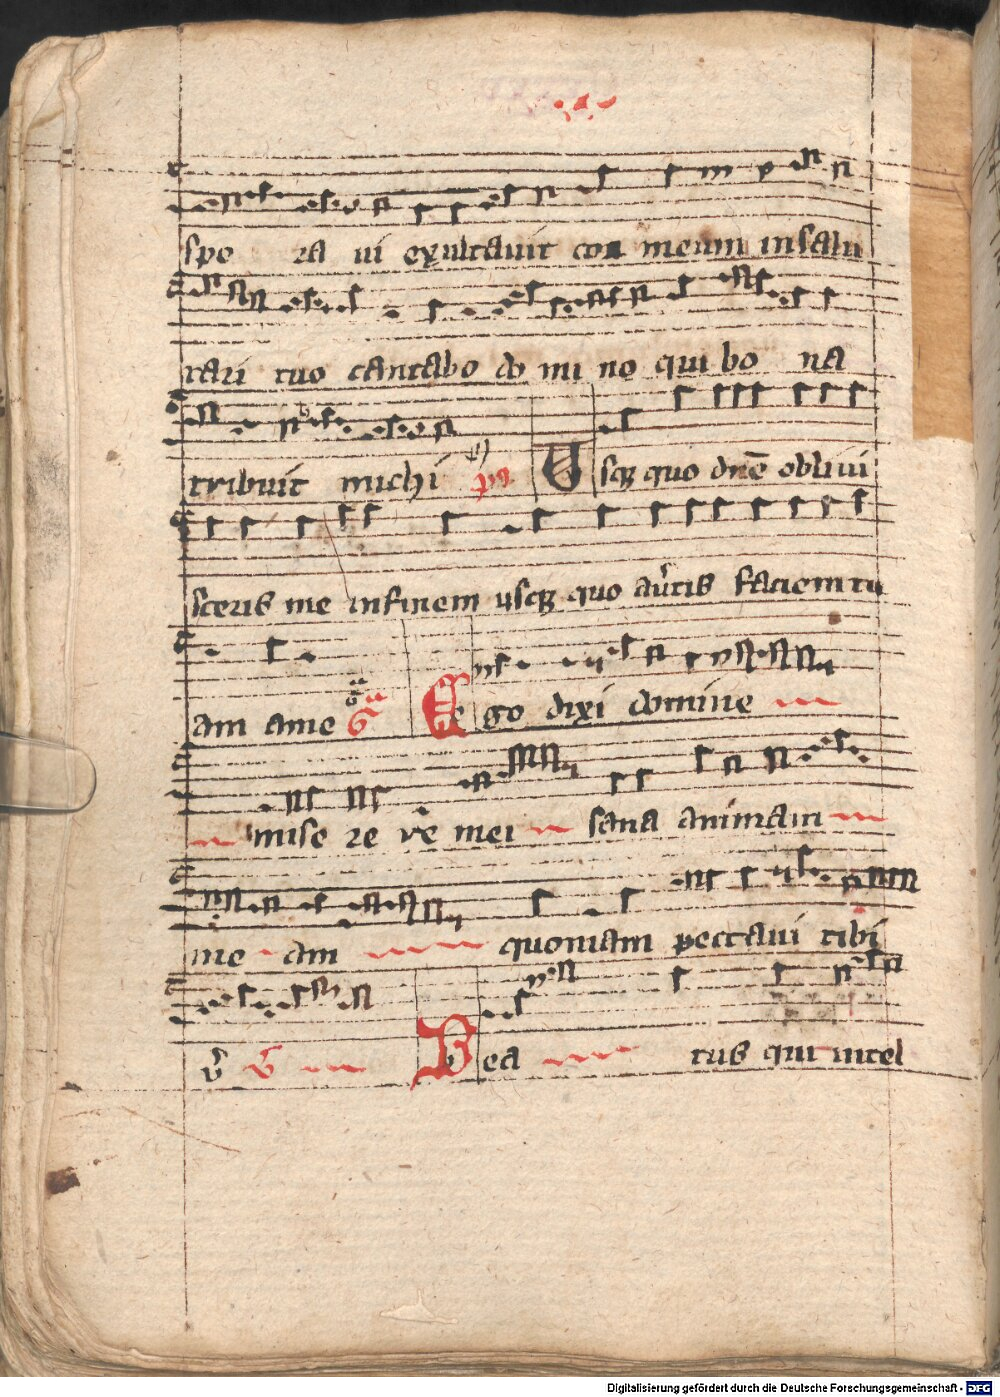 spo ra ui exultauit cor meum in salu
tari tuo cantabo do mi no qui bo na
tribuit michi ps Vsq quo dne obliui
sceris me in finem usq quo auertis faciem tu
am a me G Ego dixi domine
mise re re mei sana animam
me am quoniam peccaui tibi
V G Bea tus qui intel
Digitalisierung gefördert durch die Deutsche Forschungsgemeinschaft - DFG